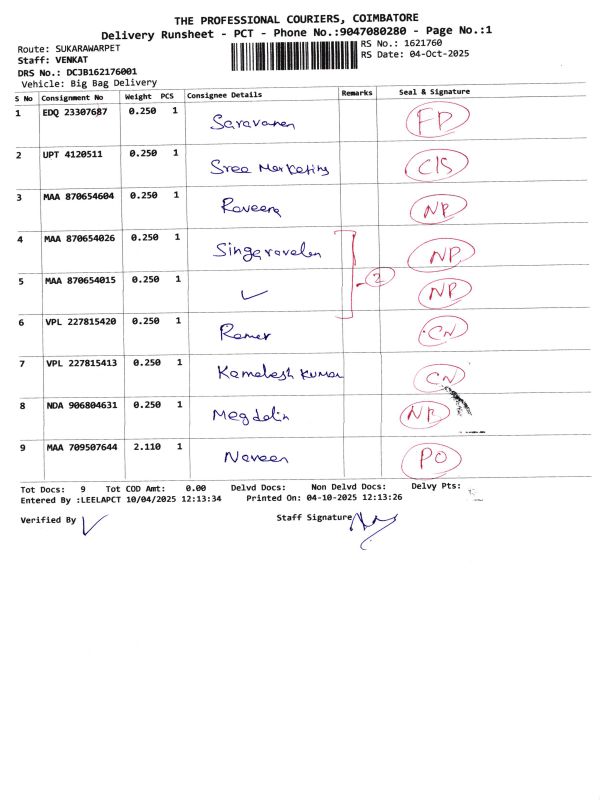 THE PROFESSIONAL COURIERS, COIMBATORE
Delivery Runsheet - PCT - Phone No.:9047080280 - Page No.:1
Route: SUKARAWARPET
RS No.: 1621760
Staff: VENKAT
RS Date: 04-Oct-2025
DRS No.: DCJB162176001
Vehicle: Big Bag Delivery
S No Consignment No Weight PCS Consignee Details Remarks Seal & Signature
1 EDQ 23307687 0.250 1 Saravanan FD
2 UPT 4120511 0.250 1 Sree Marketing C/S
3 MAA 870654604 0.250 1 Raveena NP
4 MAA 870654026 0.250 1 Singaravelan NP
2
5 MAA 870654015 0.250 1 ✓ NP
6 VPL 227815420 0.250 1 CN
7 VPL 227815413 0.250 1 Kamalesh Kumar CN
8 NDA 906804631 0.250 1 NP
9 MAA 709507644 2.110 1 Naveen PO
Tot Docs: 9 Tot COD Amt: 0.00 Delvd Docs: Non Delvd Docs: Delvy Pts:
Entered By :LEELAPCT 10/04/2025 12:13:34 Printed On: 04-10-2025 12:13:26
Verified By
Staff Signature